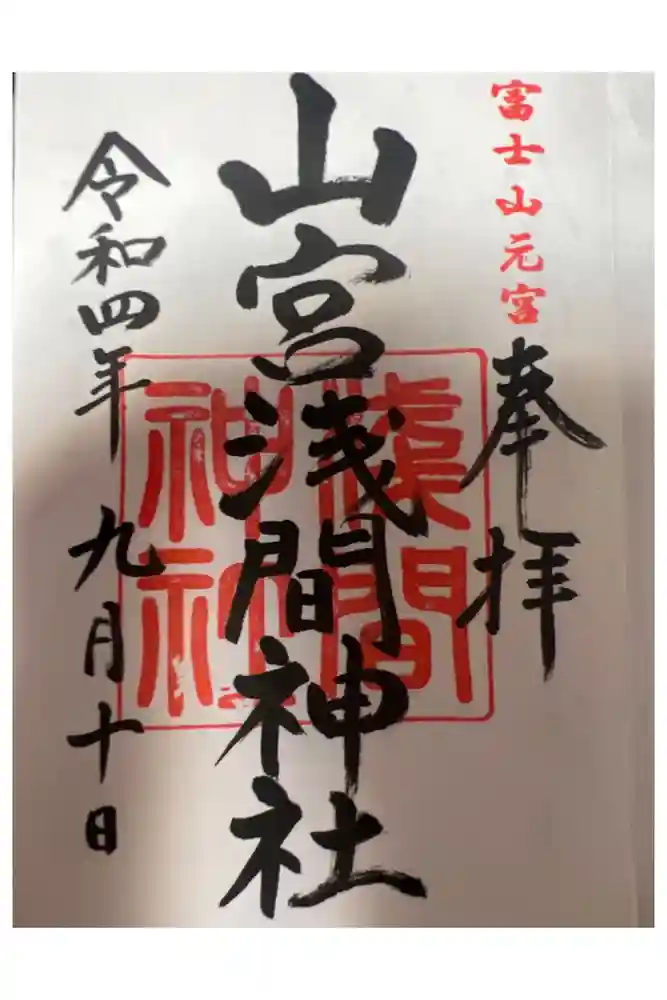 富士山元宮
奉拝
山宮浅間神社
淺間
神社
令和四年 九月十日